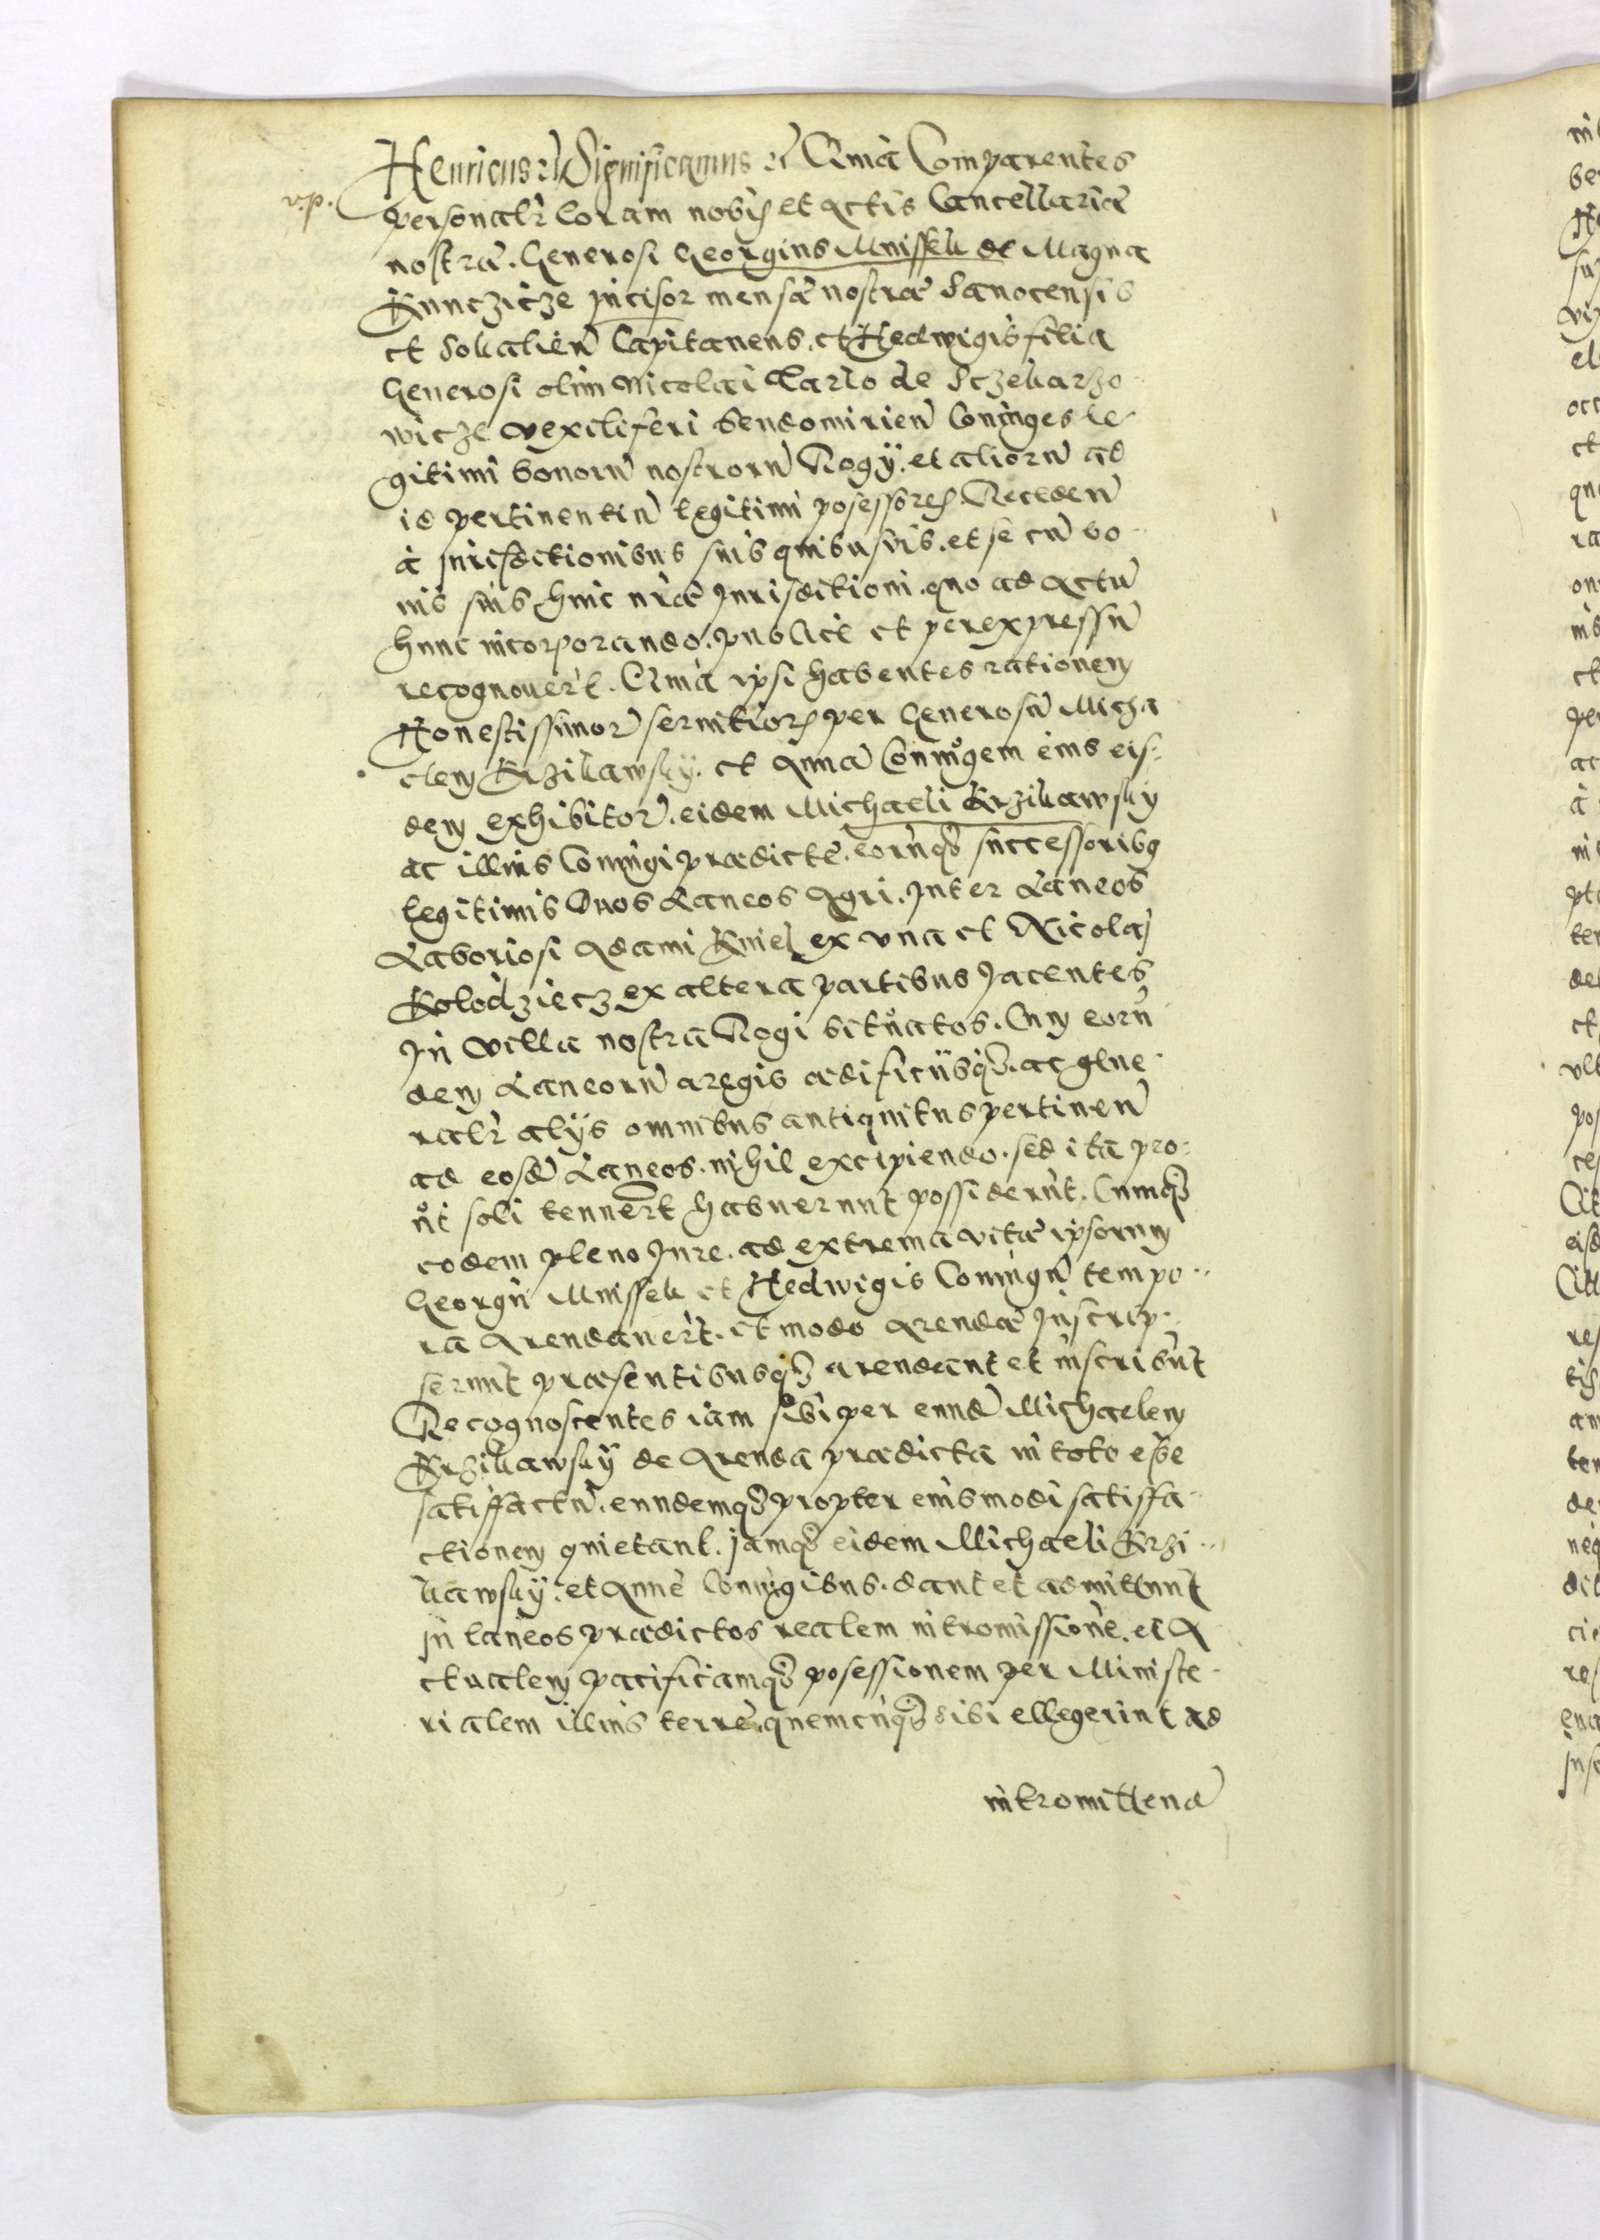 Henricus etc Significamus etc Quia Comparentes
v.p.
personalr̃ Coram nobis et Actis Cancellariæ
nostræ. Generosi Georgius Mnissek de Magna
Kunczicze Incisor mensæ nostræ Sanocensis
et Sokalień Capitaneus. et Hedwigis filia
Generosi olim Nicolai Tarlo de Sczekarzo-
wicze vexiliferi Sendomirień Coniuges le-
gitimi bonorũ nostrorũ Rogy. et aliorũ ad
id pertinentiũ legitimi posessores. Receden̄
à jurisdictionibus suis quibusvis. et se cũ bo-
nis suis huic nræ Jurisdictioni. quo ad Actũ
hunc incorporando. publicè et per expressũ
recognouerũt. Quia ipsi habentes rationem
Honestissimorũ seruitiorum per Generosũ Micha
elem Krzikawsky. et Annã Coniugem eius eis-
dem exhibitorũ. eidem Michaeli Krzikawsky
ac illius Coniugi prædictę. eorũq; successoribus
legitimis Duos Laneos Agri. Inter Laneos
Laboriosi Adami Kmiel ex vna et Nicolai
Kolodziecz ex altera partibus Jacentes
In villa nostra Rogi situatos. Cum eorũ
dem Laneorũ aregis ædificiisq;. ac gene-
ralr̃ alÿs omnibus antiquitus pertinen̄
ad eosdẽ Laneos. nihil excipiendo. sed ita pro-
ut soli tenuerũt habuerunt possiderũt. Cumq;
eodem pleno Jure. ad extrema vitæ ipsorum
Georgii Mnissek et Hedwigis Coniugũ tempo-
ra Arendauerũt. et modo Arendæ Inscrip-
serunt præsentibusq; arendant et inscribũt
Recognoscentes iam sibi per eundẽ Michaelem
Krzikawsky de Arenda prædicta in toto esse
satisfactũ. eundemq; propter eiusmodi satisfa-
ctionem quietant. jamq; eidem Michaeli Krzi-
kawsky. et Annę Coniugibus. dant et admittunt
in laneos prædictos realem intromissionẽ. et A
ctualem pacificamq; posessionem per Ministe-
rialem illius terræ. quemcũq; sibi ellegerint ad
intromittend̃